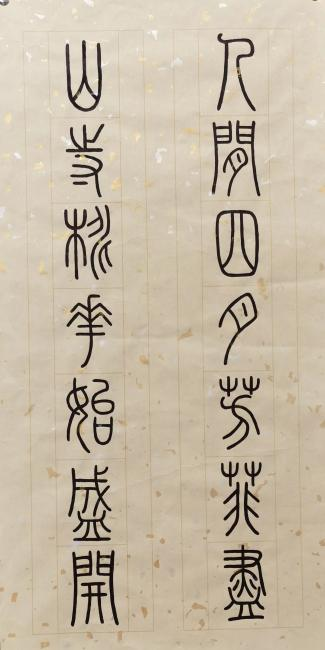 人間四月芳菲盡
山寺桃華始盛開